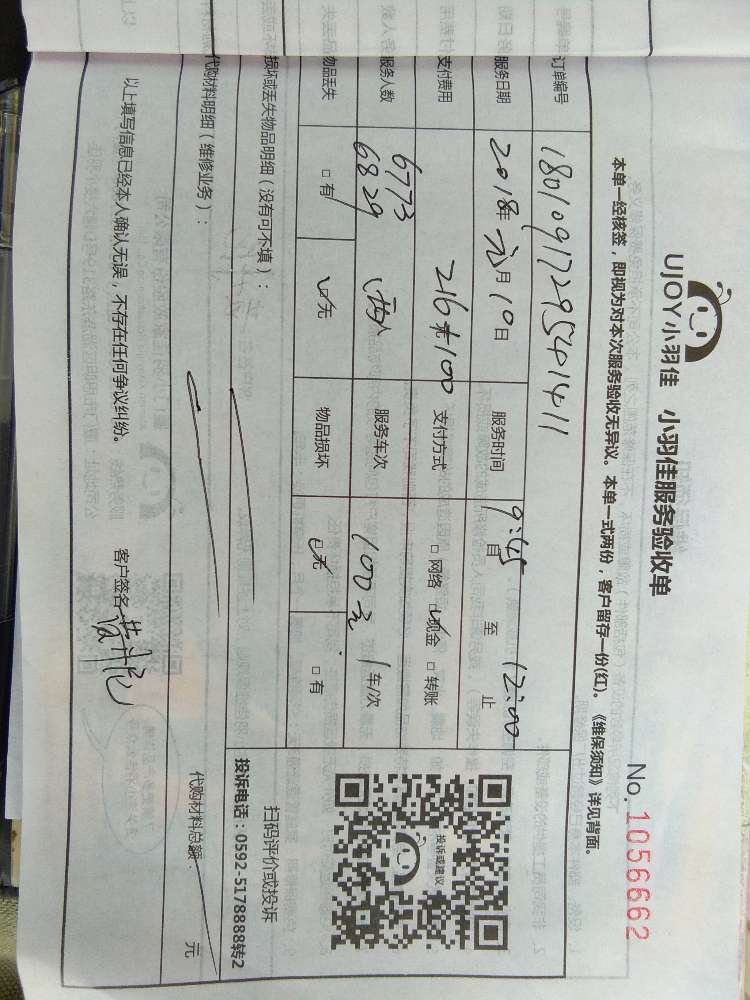 UJOY小羽佳 小羽佳服务验收单
No. 1056662
本单一经核签，即视为对本次服务验收无异议。本单一式两份，客户留存一份(红)。《维保须知》详见背面。
订单编号 18010917295401411
服务日期 2018年 元月 10日 服务时间 9:45 自 至 12:00 止
支付费用 216 支付方式 □网络 ☑现金 □转账
服务人数 6773 6829 两人 服务车次 100元 1车/次
物品丢失 □有 ☑无 物品损坏 ☑无 □有
损坏或丢失物品明细（没有可不填）：
扫码评价或投诉
投诉电话：0592-5178888转2
投诉或建议
代购材料明细（维修业务）：
代购材料总额： 元
以上填写信息已经本人确认无误，不存在任何争议纠纷。 客户签名：